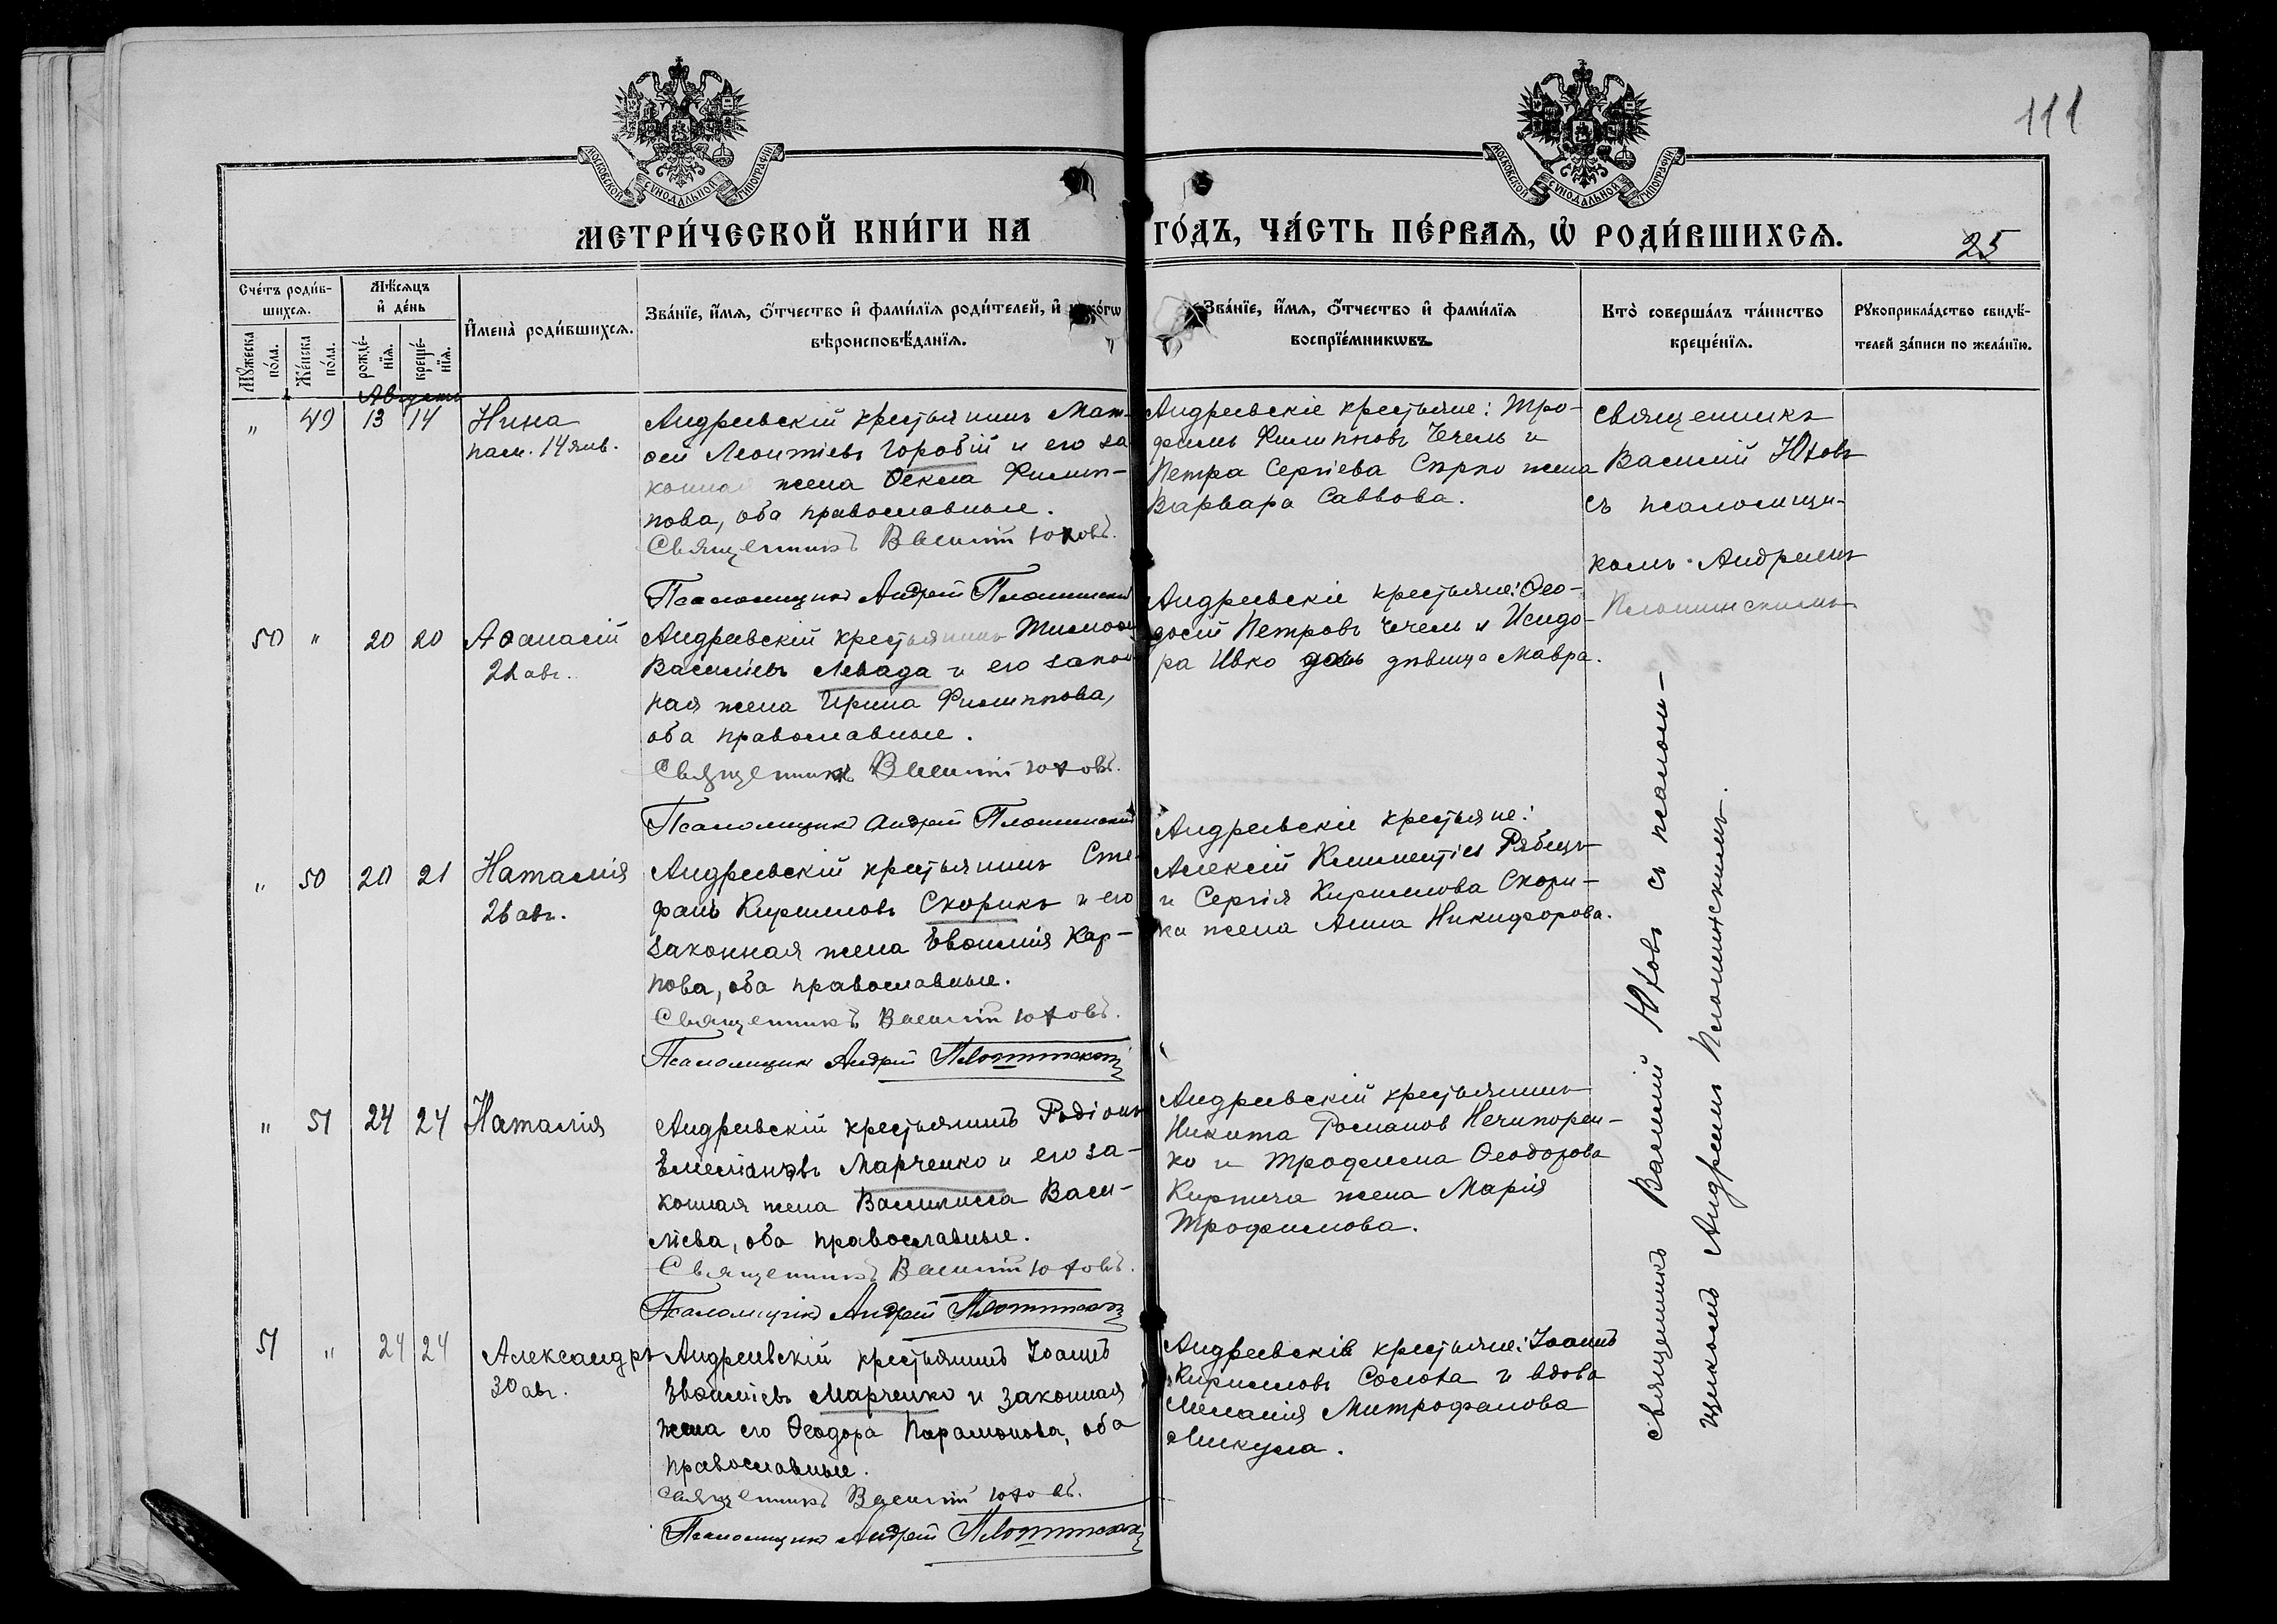 111
МОСКОВСКОЙ СѴНОДАЛЬНОЙ ТИПОГРАФІИ
МОСКОВСКОЙ СѴНОДАЛЬНОЙ ТИПОГРАФІИ
МЕТРИ́ЧЕСКОЙ КНИ́ГИ НА ГО́ДЪ, ЧА́СТЬ ПЕ́РВАѦ, Ѡ РОДИ́ВШИХСѦ.
25
Сче́тъ роди́в-
шихсѧ.
Мꙋжеска по́ла.
Же́нска по́ла.
Мѣ́сѧцъ
и҆ де́нь
рожде́-
нїѧ.
креще́-
нїѧ.
И҆мена̀ роди́вшихсѧ.
Зва́нїе, и҆́мѧ, ѻ҆́тчество и҆ фами́лїѧ роди́телей, и҆ како́гѡ
вѣроисповѣ́данїѧ.
Зва́нїе, и҆́мѧ, ѻ҆́тчество и҆ фами́лїѧ
воспрїе́мникѡвъ.
Кто̀ соверша́лъ та́инство
креще́нїѧ.
Рꙋкоприкла́дство свидѣ́-
телей за́писи по жела́нїю.
Августъ
" 49 13 14 Нина
пам. 14 янв.
Андреевскій крестьянинъ Мат-
ѳей Леонтіевъ Горобій и его за
конная жена Ѳекла Филип-
пова, оба православные.
Священникъ Василій Юховъ.
Псаломщикъ Андрей Плошинскій
Андреевскіе крестьяне: Тро-
фимъ Филипповъ Чечель и
Петра Сергіева Сирко жена
Варвара Саввова.
Священникъ
Василій Юховъ
съ псаломщи-
комъ Андреемъ
Плошинскимъ
50 " 20 20 Аѳанасій
22 авг.
Андреевскій крестьянинъ Тимоѳей
Васильевъ Левада и его закон
ная жена Ирина Филиппова,
оба православные.
Священникъ Василій Юховъ.
Псаломщикъ Андрей Плошинскій
Андреевскіе крестьяне: Ѳео-
досій Петровъ Чечель и Исидо-
ра Ивко дочь дѣвица Мавра.
" 50 20 21 Наталія
26 авг.
Андреевскій крестьянинъ Сте-
фанъ Кирилловъ Скорикъ и его
законная жена Евѳимія Кар-
пова, оба православные.
Священникъ Василій Юховъ.
Псаломщикъ Андрей Плошинскій
Андреевскіе крестьяне:
Алексій Климентіев Рябецъ
и Сергія Кириллова Скори-
ка жена Анна Никифорова.
" 51 24 24 Наталія
Андреевскій крестьянинъ Родіонъ
Емеліановъ Марченко и его за-
конная жена Василисса Васи-
ліева, оба православные.
Священникъ Василій Юховъ.
Псаломщикъ Андрей Плошинскій
Андреевскій крестьянинъ
Никита Романов Нечипорен-
ко и Трофима Ѳеодорова
Кирпича жена Марія
Трофимова.
51 " 24 24 Александръ
30 авг.
Андреевскій крестьянинъ Іоаннъ
Евѳиміевъ Марченко и законная
жена его Ѳеодора Парамонова, оба
православные.
Священникъ Василій Юховъ.
Псаломщикъ Андрей Плошинскій
Андреевскіе крестьяне: Іоаннъ
Кирилловъ Солоха и вдова
Меланія Митрофанова
Микула.
Священникъ Василій Юховъ съ псалом-
щикомъ Андреемъ Плошинскимъ.